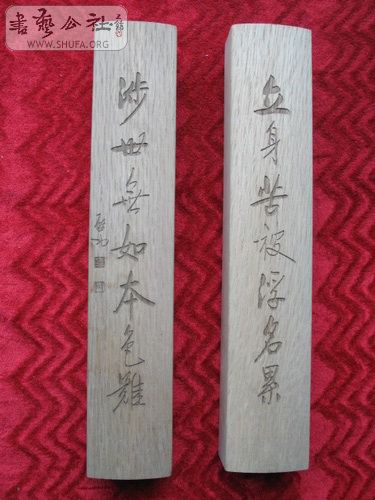 書藝公社
WWW.SHUFA.ORG
立身苦被浮名累
涉世無如本色難
啟功